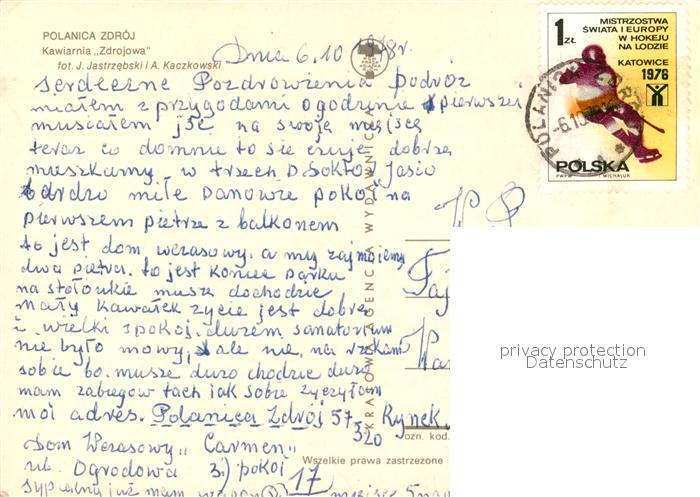 POLANICA ZDRÓJ
Kawiarnia „Zdrojowa"
fot. J. Jastrzębski i A. Kaczkowski
Dnia 6.10 1978r.
serdeczne Pozdrowżenia podróż
miałem z przygodami o godzinie pierwszej
musiałem jśc na swoje miejsce
teraz co domnie to sie czuje dobrze
muszkamy w trzech Doktor Jasio
bardzo miłe Panowże pokoj na
pierwszem pietrze z balkonem
to jest dom wczasowy. a my zajmojemy
dwa pietra. to jest koniec parku
na stołówkie musze dochodzic
mały kawałek życie jest dobre
i wielki spokoj. dużem sanatorium
nie było mowy, ale nie na rzekam
sobie bo. musze dużo chodzic dużo
mam zabiegow tach jak sobie życzyłem
moi adres. Polanica Zdrój 57-320 Rynek
Dom Wczasowy „Carmen„
ul. Ogrodowa 3.) pokoi 17
sypialna już mam
KRAJOWA AGENCJA WYDAWNICZA
RSW PRASA KSIĄŻKA RUCH
Wszelkie prawa zastrzeżone
ozn. kod.
1 ZŁ
MISTRZOSTWA
ŚWIATA I EUROPY
W HOKEJU
NA LODZIE
KATOWICE
1976
POLSKA
PWPW
J. MICHALUK
POLANICA ZDRÓJ
-6.10
privacy protection
Datenschutz